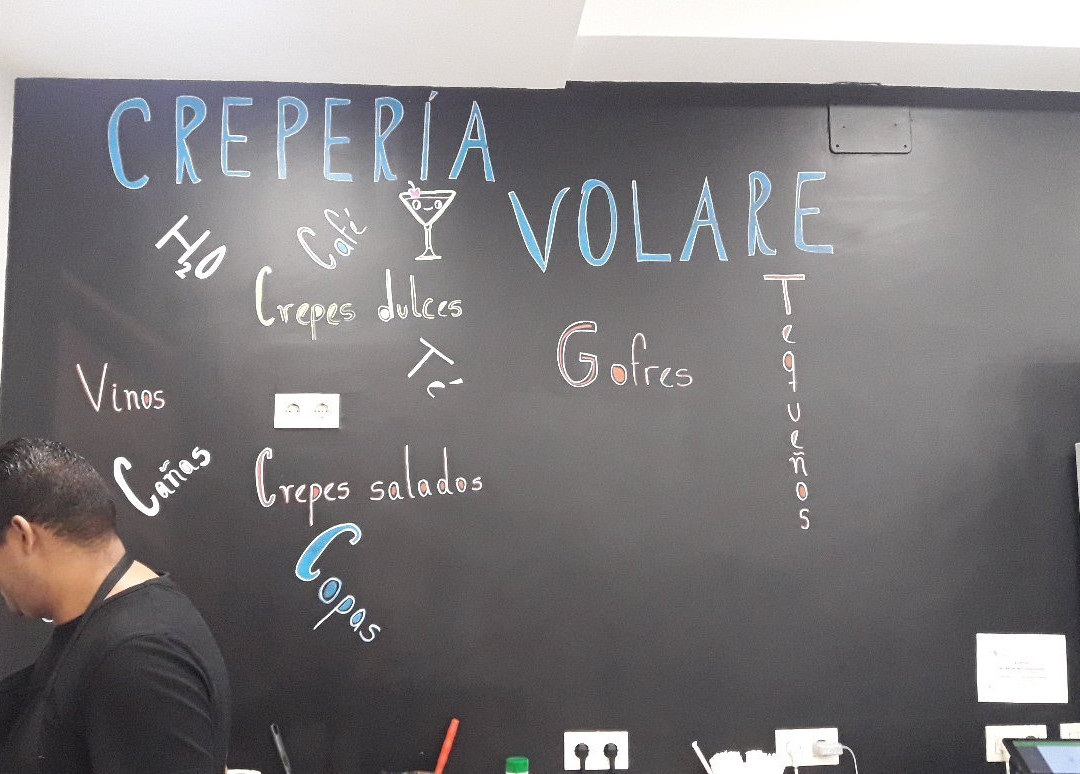 CREPERÍA
VOLARE
H₂O
Café
Crepes dulces
Té
Vinos
Gofres
Tequeños
Cañas
Crepes salados
Copas